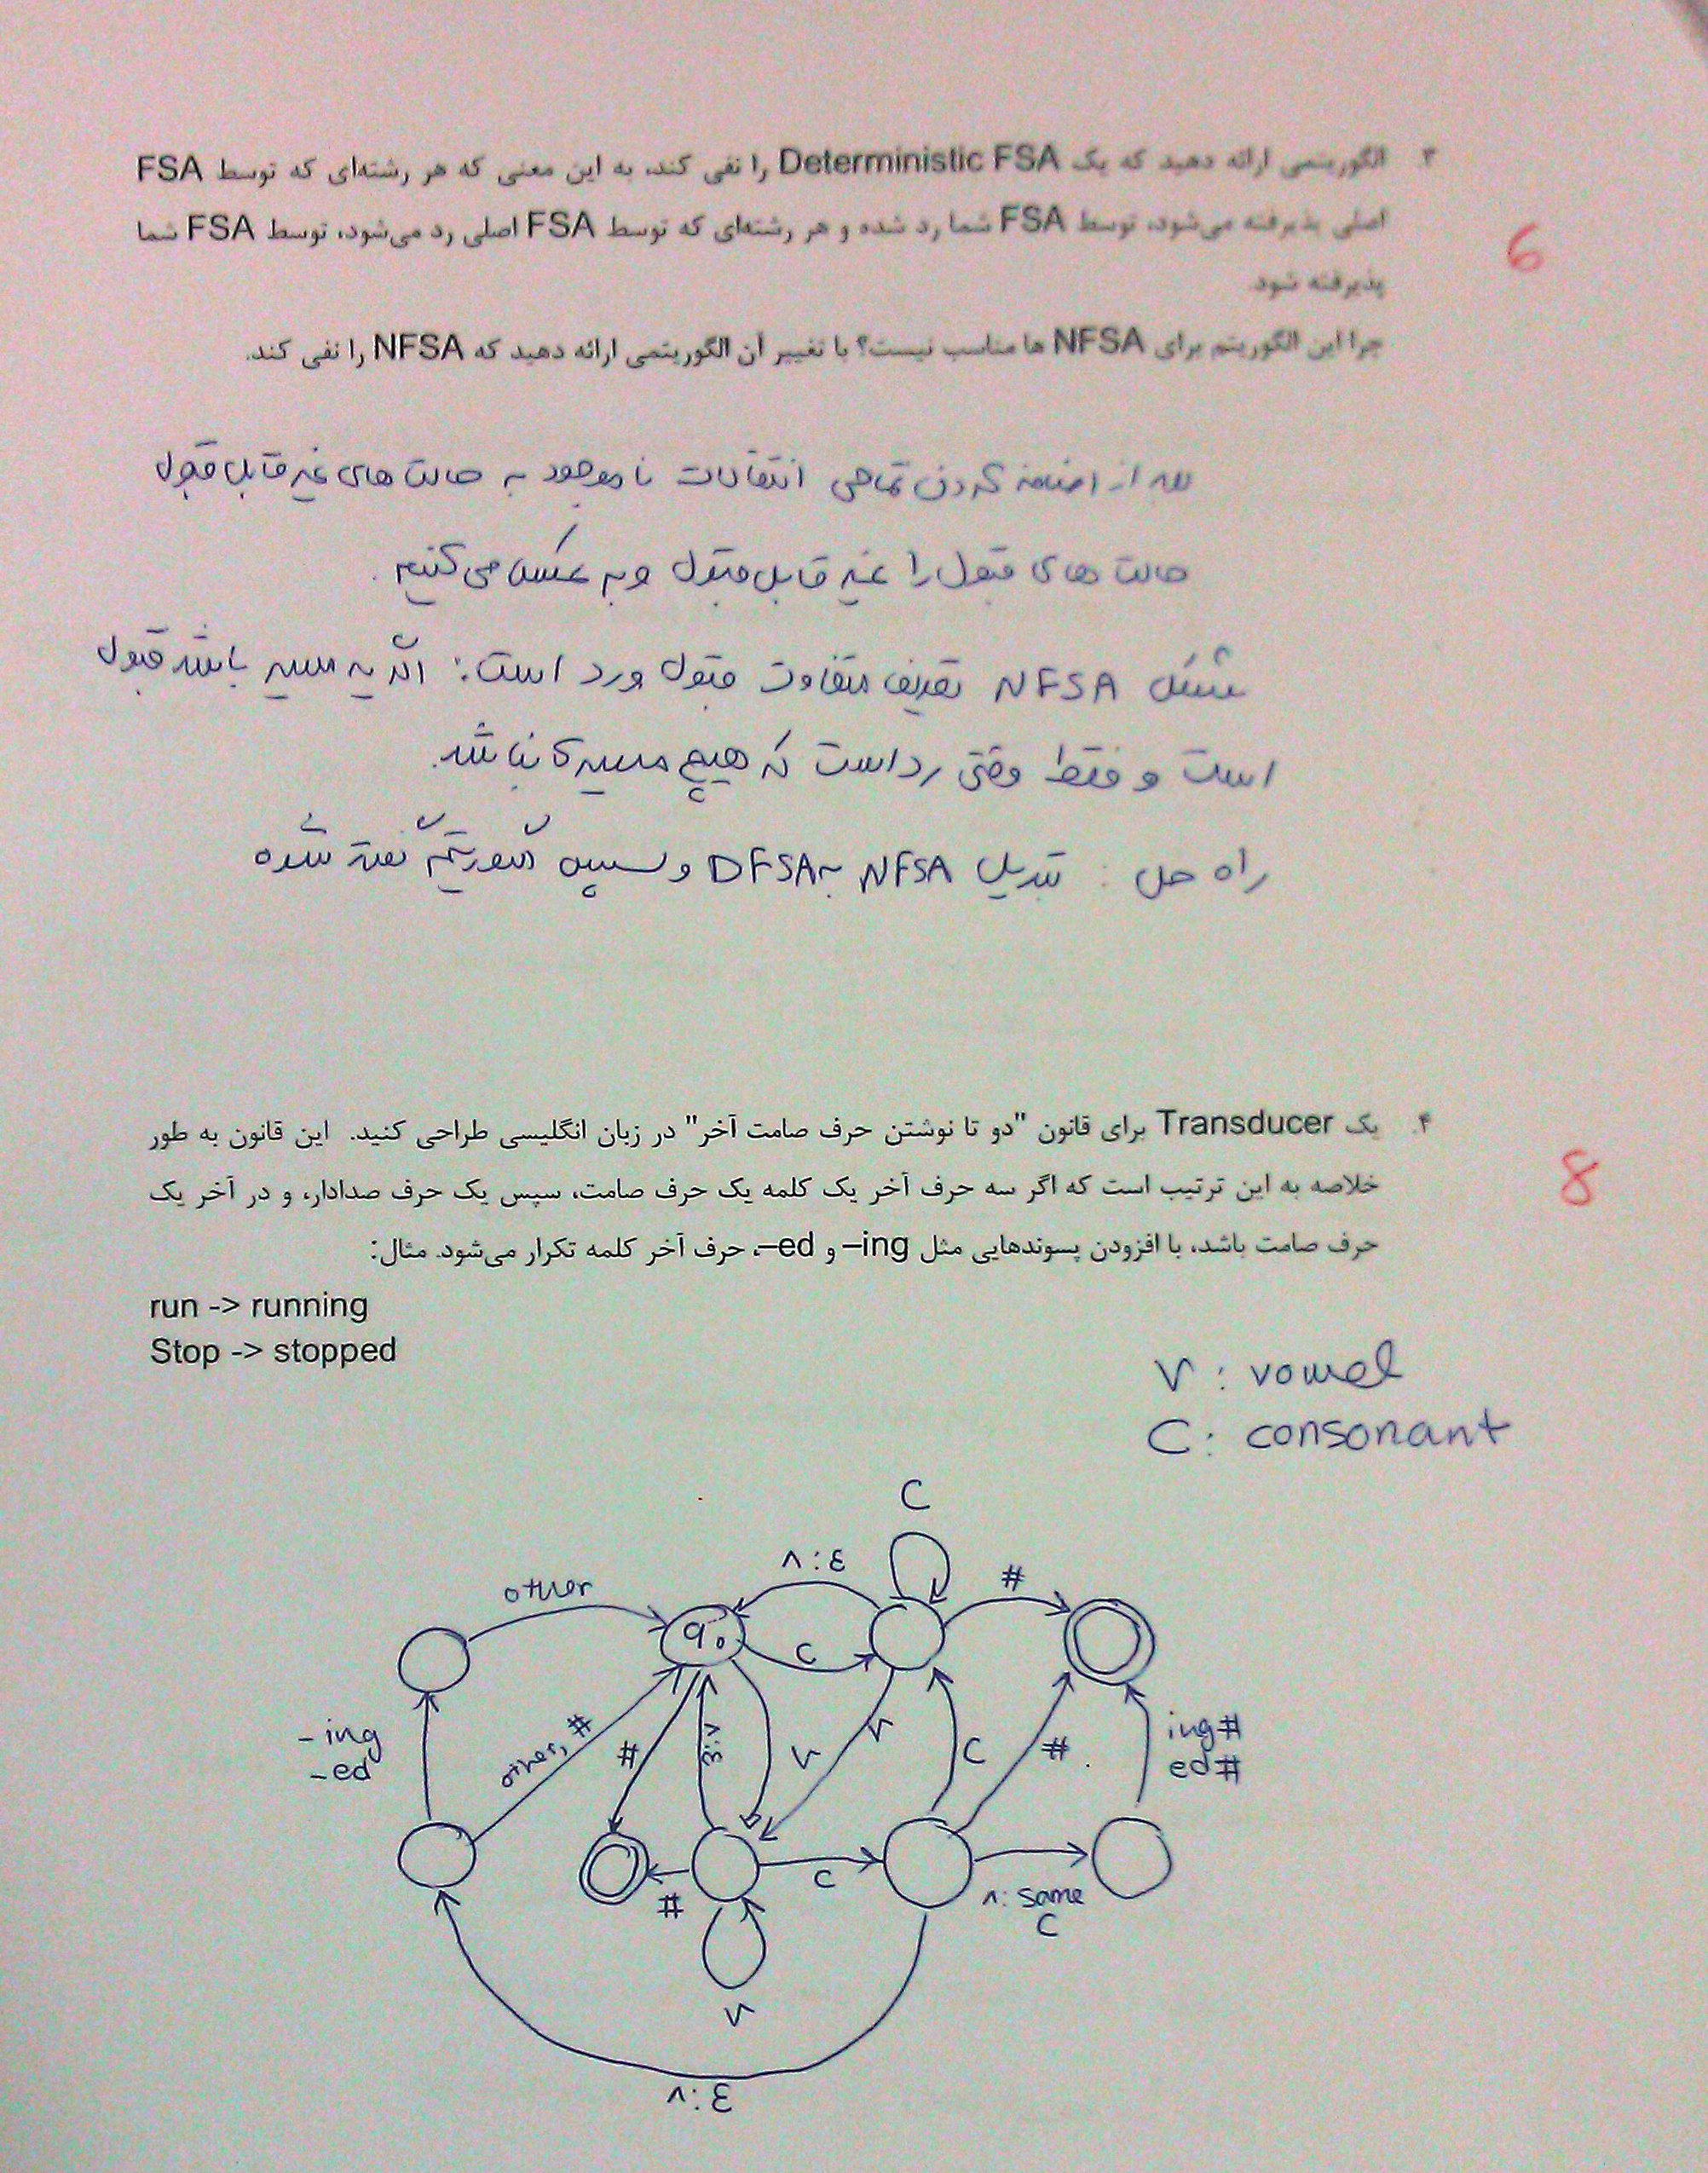 ۳ الگوریتمی ارائه دهید که یک Deterministic FSA را نفی کند، به این معنی که هر رشته‌ای که توسط FSA
اصلی پذیرفته می‌شود، توسط FSA شما رد شده و هر رشته‌ای که توسط FSA اصلی رد می‌شود، توسط FSA شما
پذیرفته شود.
6
چرا این الگوریتم برای NFSA ها مناسب نیست؟ با تغییر آن الگوریتمی ارائه دهید که NFSA را نفی کند.
بعد از اضافه کردن تمامی انتقالات ناموجود به حالت های غیر قابل قبول
حالت های قبول را غیر قابل قبول و به عکس می‌کنیم.
مشکل NFSA تعریف متفاوت قبول و رد است: اگر یه مسیر باشد قبول
است و فقط وقتی رد است که هیچ مسیری نباشد.
راه حل : تبدیل NFSA به DFSA و سپس الگوریتم گفته شده
۴. یک Transducer برای قانون "دو تا نوشتن حرف صامت آخر" در زبان انگلیسی طراحی کنید. این قانون به طور
خلاصه به این ترتیب است که اگر سه حرف آخر یک کلمه یک حرف صامت، سپس یک حرف صدادار، و در آخر یک
حرف صامت باشد، با افزودن پسوندهایی مثل ing– و ed–، حرف آخر کلمه تکرار می‌شود. مثال:
8
run -> running
Stop -> stopped
V : vowel
C : consonant
C
^:ε
#
other
q0
C
-ing
-ed
other, #
#
^:ε
V
V
C
#
ing#
ed#
#
C
^: same
C
V
^:ε